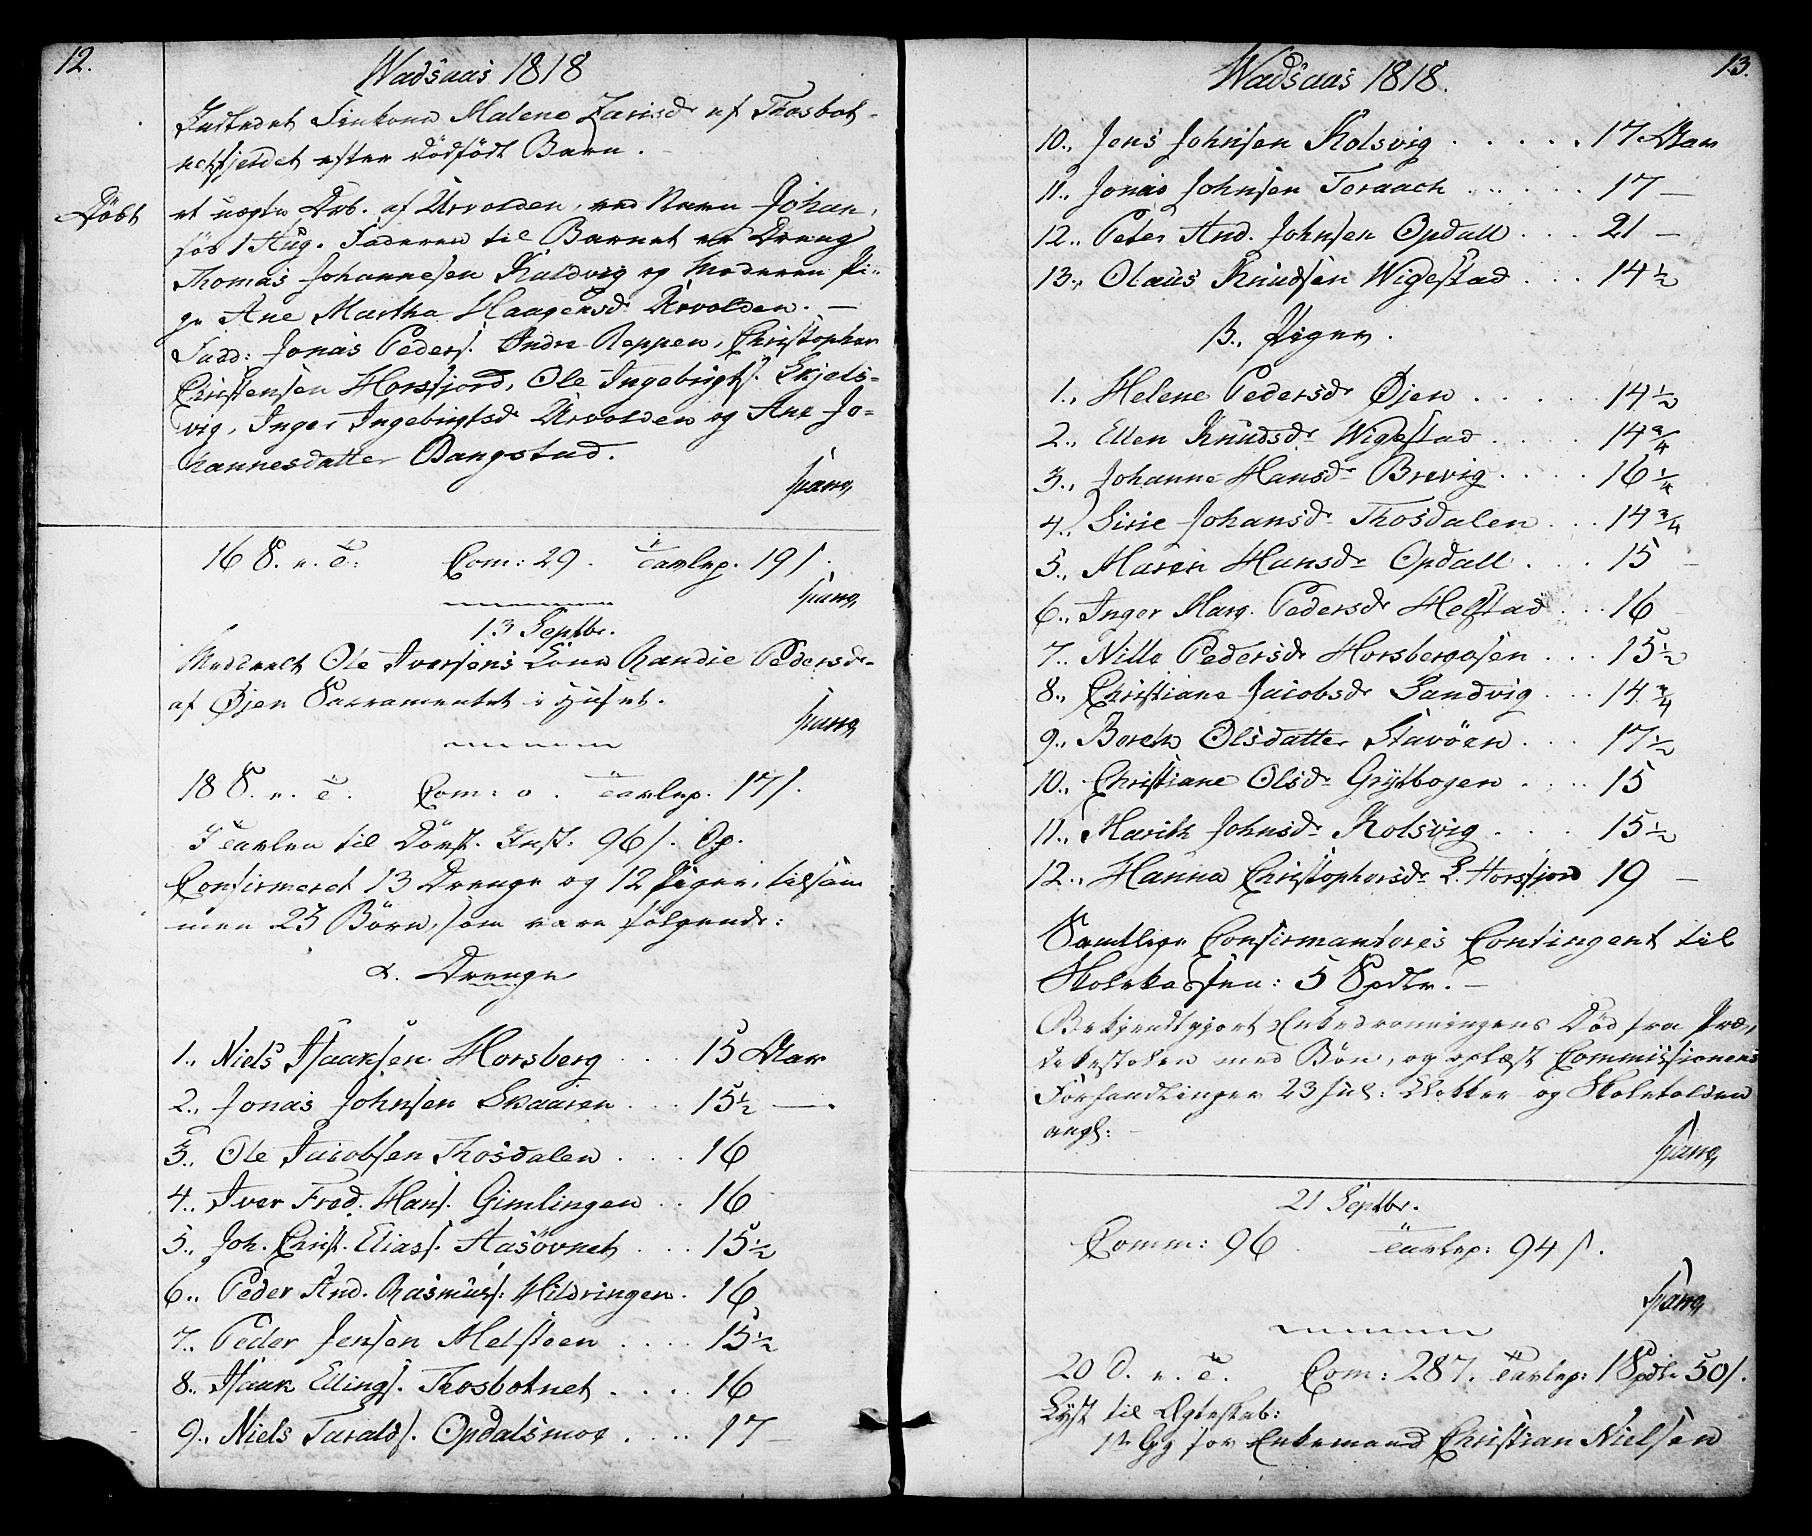 12.
Wadsaas 1818
Indledet Finkona Malene Larisdr af Thosbot-
netfjerdet efter dödfödt Barn.
Döbt
et uægte Drb. af Urvolden, ved Navn Johan,
föd 1 Aug. Faderen til Barnet er Dreng
Thomas Johannesen Kaldvig og Moderen Pi-
ge Ane Martha Haagensdr Urvolden. —
Fadd: Jonas Peders. Indre Reppen, Christopher
Christensen Horsfjord, Ole Ingebrigts. Skjels-
vig, Inger Ingebrigtsdr Urvolden og Ane Jo-
hannesdatter Bangstad.
16 S. e. T. Com: 29. Tavlep. 19 s.
13 Septbr.
Meddeelt Ole Iversens Kone Randie Pedersdr
af Øjen Sacramentet i Huset.
18 S. e. T. Com: 0. Tavlep. 17 s.
I Tavlen til Dövst. Inst: 96 s. Og
Confirmeret 13 Drenge og 12 Piger, tilsam
men 25 Börn, som vare fölgende:
α. Drenge
1., Niels Isaaksen Horsberg . . . 15 Aar
2., Jonas Johnsen Skaaren . . . 15 1/2 —.
3., Ole Jacobsen Thosdalen . . . 16
4., Iver Fred. Hans. Gimlingen . . 16
5., Joh. Christ. Elias s. Aasövnet . . . 15 1/2
6., Peder And. Rasmus s. Hildringen . 16
7., Peder Jensen Melsteen . . . . 15 1/2
8., Isaak Ellings. Thosbotnet . . . . 16
9., Niels Taralds. Opdalsmoe . . . . 17 —
13.
Wadsaas 1818.
10., Jens Johnsen Kolsvig . . . . . 17 Aar
11., Jonas Johnsen Teraach . . . . . 17 —
12., Peter And. Johnsen Opdall . . . 21 —
13., Olaus Knudsen Wigestad . . . 14 1/2
β., Piger.
1., Helene Pedersdr Øjen . . . . . 14 1/2
2., Ellen Knudsdr Wigestad . . . . 14 3/4
3., Johanne Hansdr Brevig . . . . 16 1/4
4., Sirie Johansdr Thosdalen . . . 14 3/4
5., Maren Hansdr Opdall . . . . 15 —
6., Inger Marg. Pedersdr Helstad . . . 16
7., Nille Pedersdr Horsbergosen . . . 15 1/2
8., Christiane Jacobsdr Sandvig . . . 14 3/4
9., Boreth Olsdatter Stavöen . . . 17 1/2
10., Christiane Olsdr Grytbogen . . . . 15
11., Marith Johnsdr Kolsvig . . . 15 1/2
12., Hanna Christophersdr L. Horsfjord 19 —
Samtlige Confirmanteres Contingent til
Skolekassen: 5 Spdlr. —
Bekjendtgjort Enkedronningens Död fra Præ-
dikestolen med Bön, og oplæst Commissionens
Forhandlinger 23 Jul: Klokker og Skoleholdere
angl: —
21 Septbr.
Comm: 96. Tavlep: 94 s.
20 S. e. T. Com: 287. Tavlep: 1 Spdlr 50 s.
Lyst til Ægteskab:
1ste Gg for Enkemand Christian Nielsen